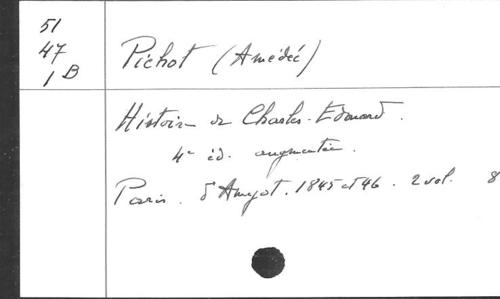 51
47
1 B
Pichot (Amédée)
Histoire de Charles-Edouard.
4e éd. augmentée.
Paris. d'Amyot. 1845 et 46. 2 vol. 8